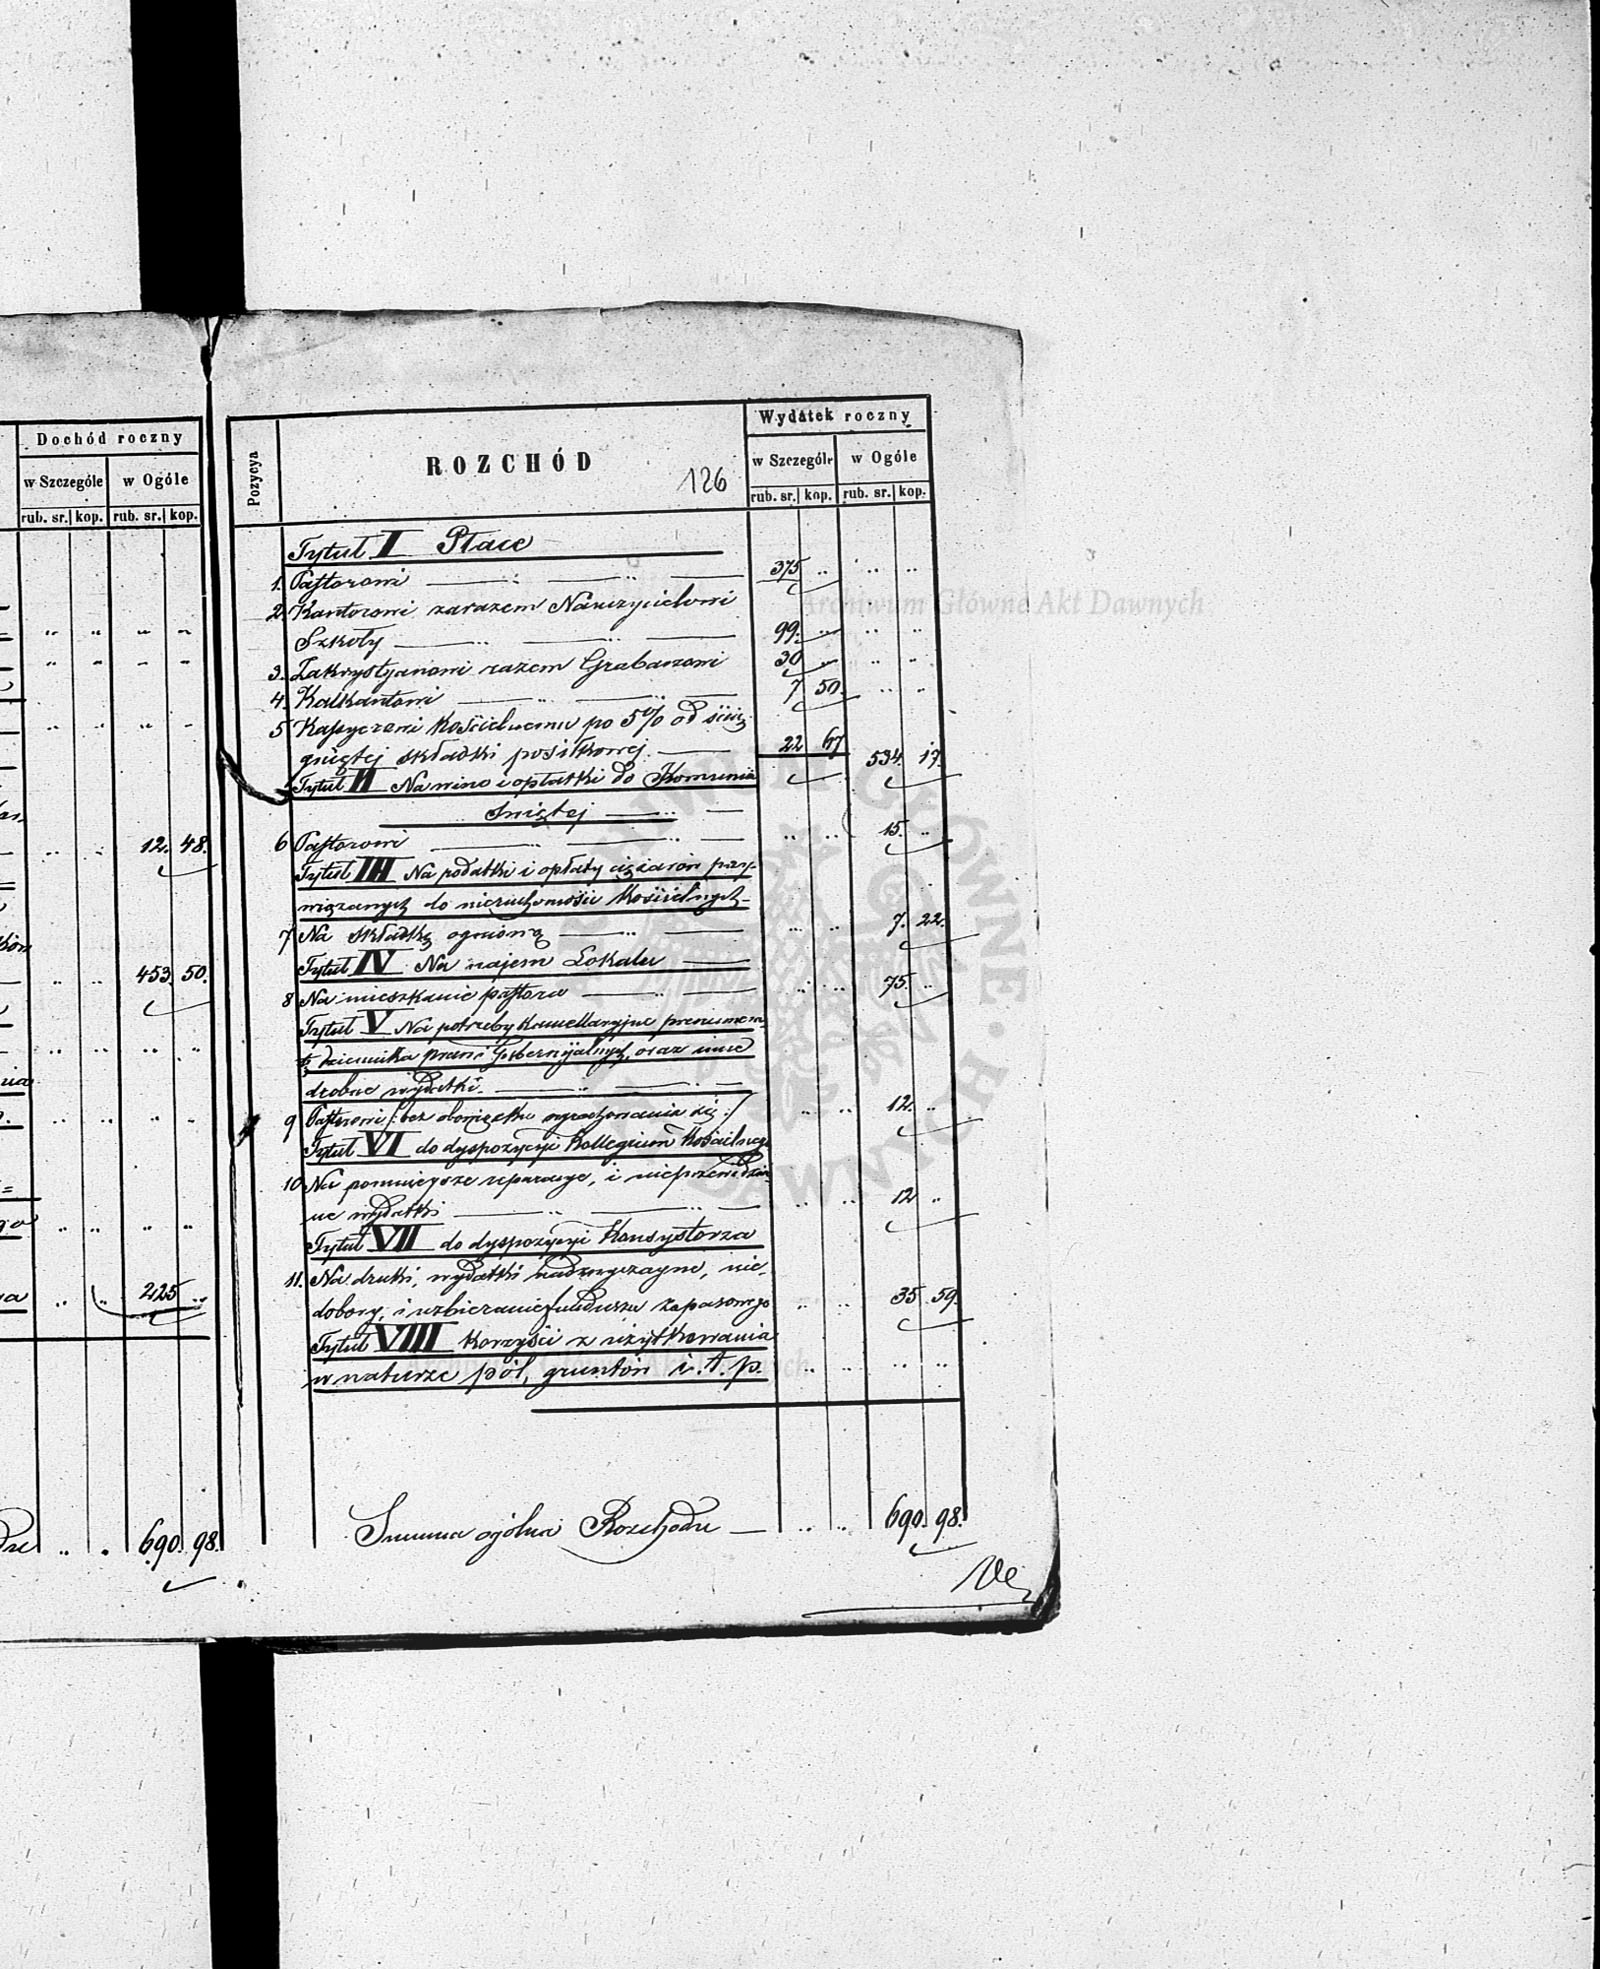 Dochód roczny
w Szczególe w Ogóle
rub. sr. kop. rub. sr. kop.
12. 48.
453. 50.
225 ..
690. 98.
Pozycya
ROZCHÓD
126
Wydatek roczny
w Szczególe w Ogóle
rub. sr. kop. rub. sr. kop.
Tytuł I Płace
1. Pastorowi 375 .. .. ..
2. Kantorowi zarazem Nauczycielowi
Szkoły 99. .. .. ..
3. Zakrystyanowi razem Grabarzowi 30 .. .. ..
4. Kalkantowi 7 50. .. ..
5 Kassyerowi Kościelnemu po 5% od ścią-
gniętej składki posiłkowej 22 67 534. 17.
Tytuł II Na wino i opłatki do Komunii
Świętej
6 Pastorowi .. .. 15. ..
Tytuł III Na podatki i opłaty ciężarów przy-
wiązanych do nieruchomości Kościelnych
7 Na składkę ogniową .. .. 7. 22.
Tytuł IV Na najem Lokalu
8 Na mieszkanie pastora .. .. 75. ..
Tytuł V Na potrzeby Kancellaryjne prenumera-
tę dziennika praw Gubernjalnych, oraz inne
drobne wydatki
9 Pastorowi /: bez obowiązku wyrachowania się :/ .. .. 12. ..
Tytuł VI do dyspozycyi Kollegium Kościelnego
10 Na pomniejsze reparacye, i nieprzewidzia-
ne wydatki .. .. 12 ..
Tytuł VII do dyspozycyi Konsystorza
11. Na druki, wydatki nadzwyczajne, nie-
dobory, i uzbieranie funduszu zapasowego .. .. 35. 59.
Tytuł VIII Korzyści z użytkowania
w naturze pól, gruntów i. t. p. .. .. .. ..
Summa ogólna Rozchodu .. .. 690. 98.
Archiwum Główne Akt Dawnych
Archiwum Główne Akt Dawnych